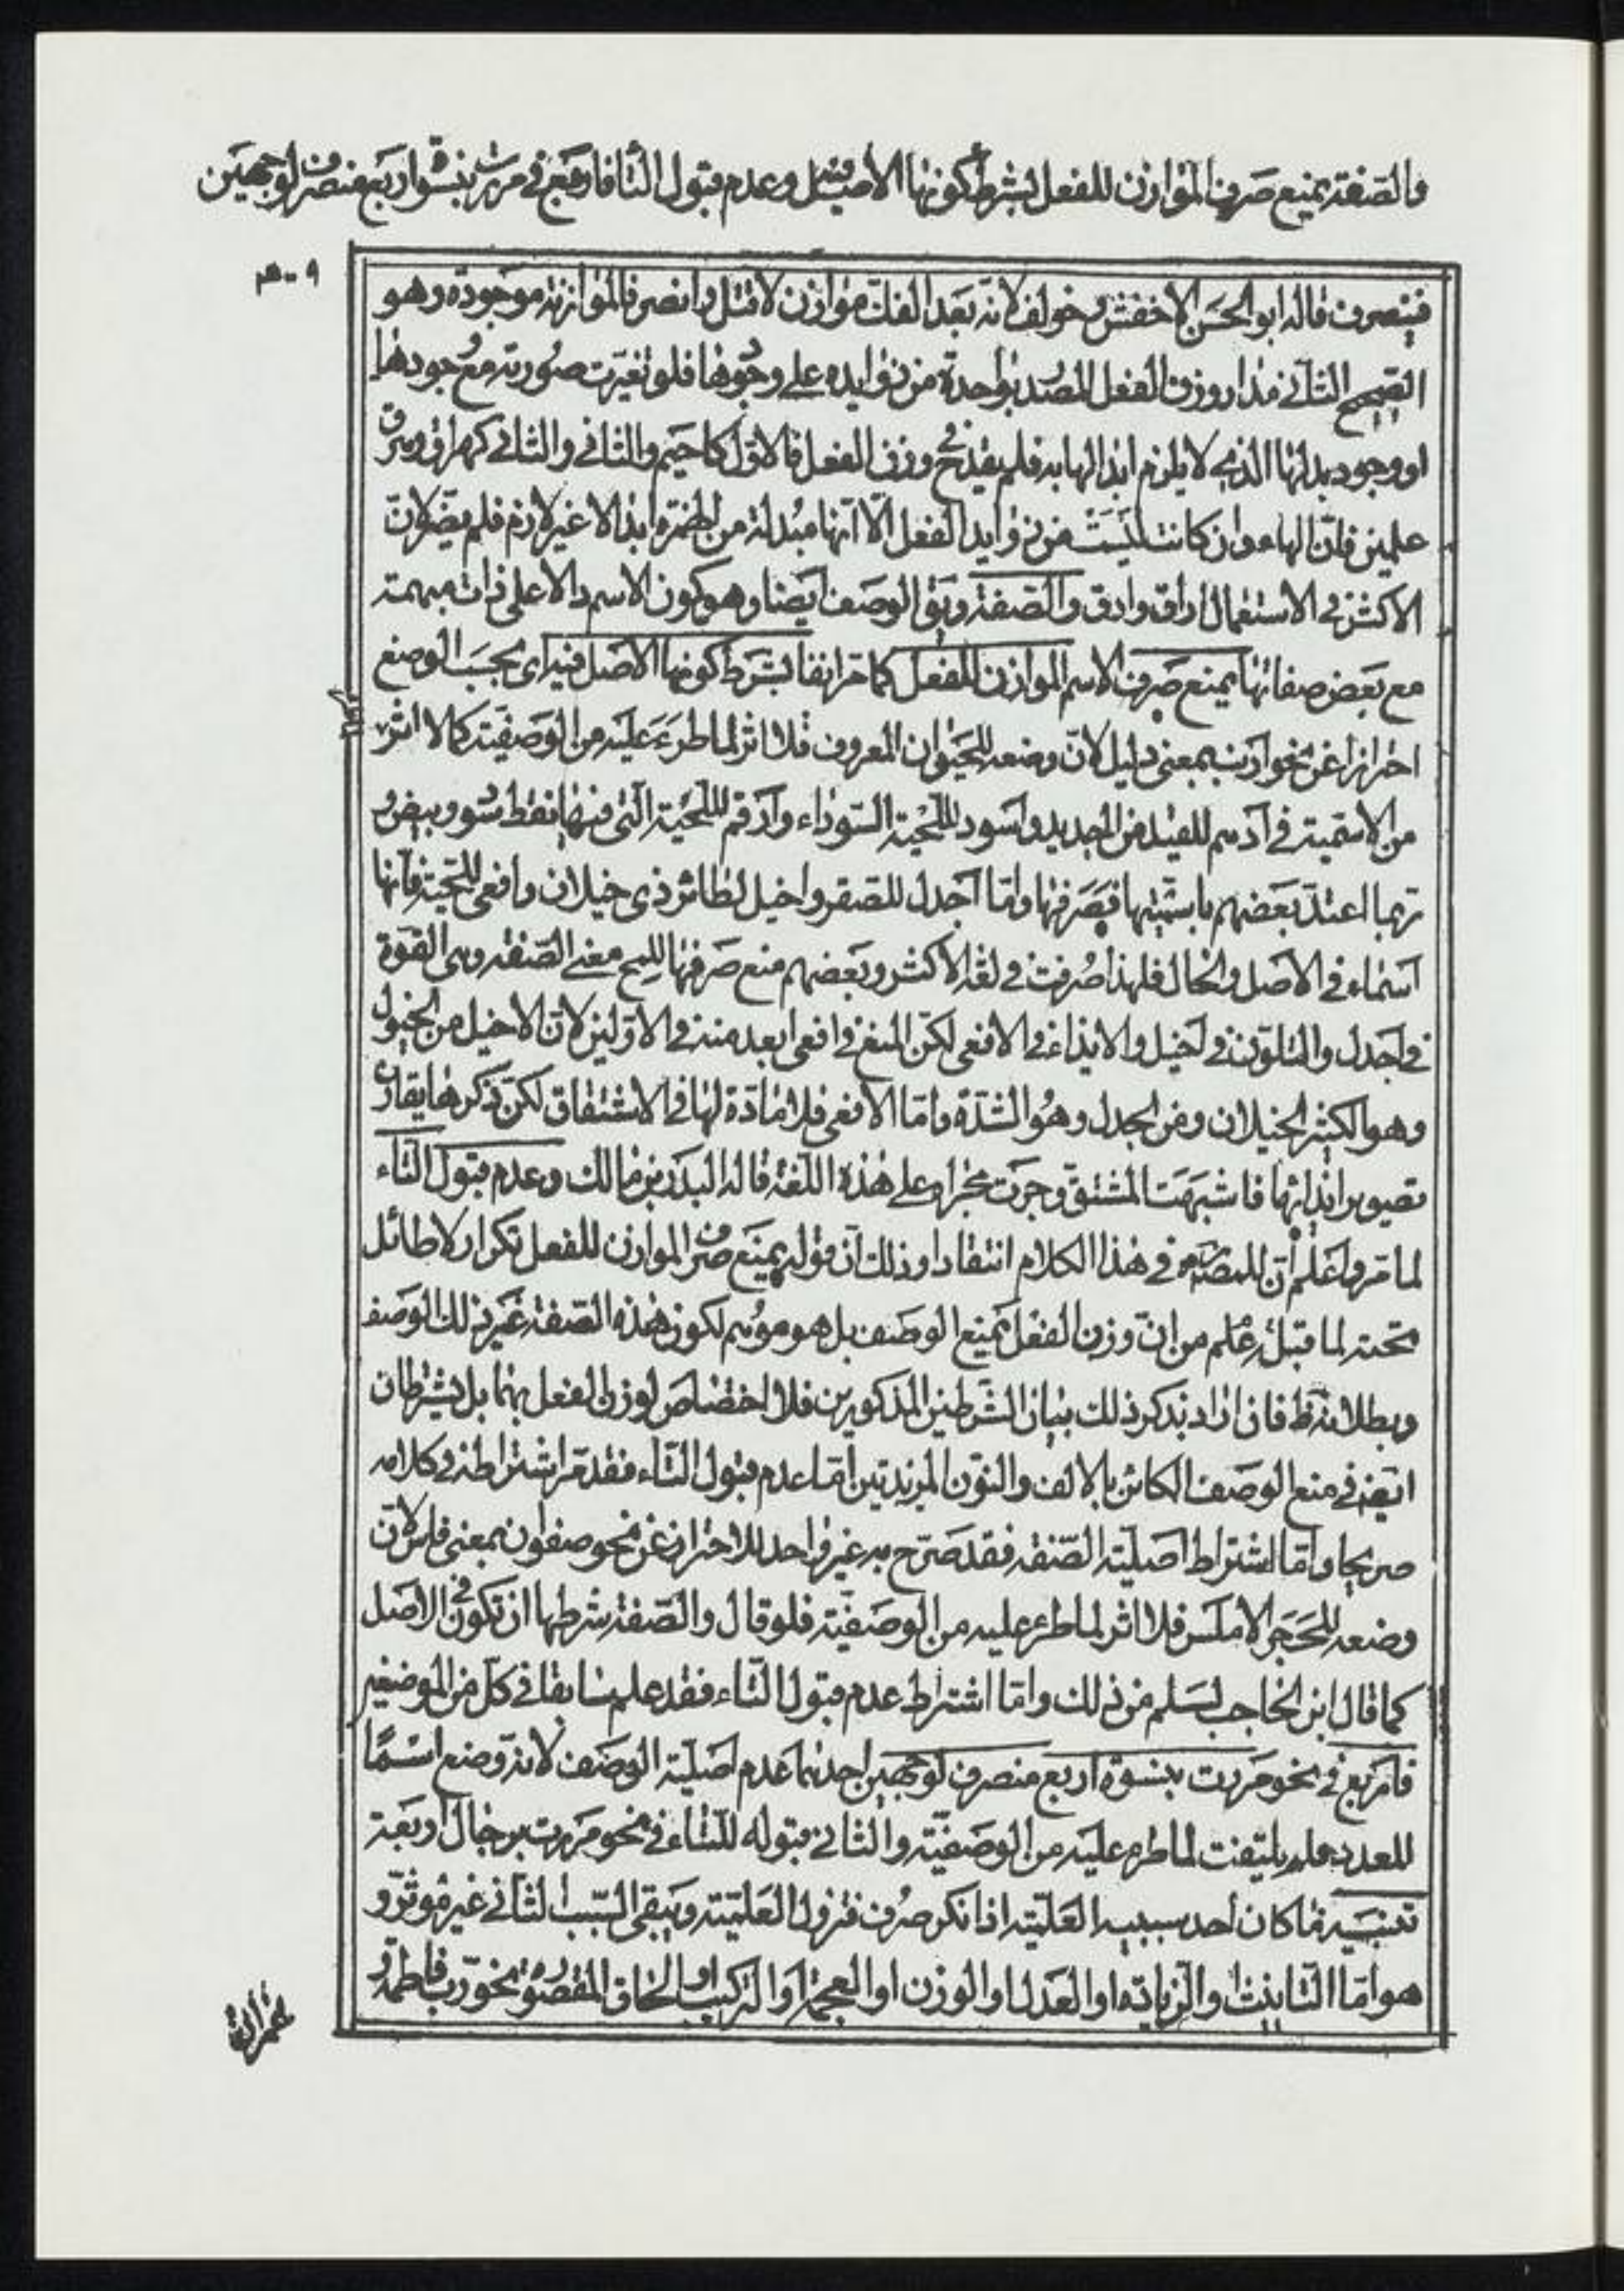 والصفة يمنع صرف الموازن للفعل بشرط كونها الاصل فيه وعدم قبول التا فاربع في مررت بنسوة اربع منصرف لوجهين
٣٠٩
فينصرف قاله ابو الحسن الاخفش وخولف لانه بعد الفك موازن لاقتل وانصر فالموازنة موجودة وهو
الصحيح الثاني مدار وزن الفعل المصدر بواحدة من زوايده على وجودها فلو تغيرت صورته مع وجودها
او وجود بدلها الذي لا يلزم ابدالها به فلم يقدح في وزن الفعل فالاول كاحيم والثاني والثاني كهراق وهرق
علمين فان الهاء وان كانت ليست من زوايد الفعل الا انها مبدلة من الهمزة ابدالا غير لازم فلم يضر لان
الاكثر في الاستعمال اراق وارق والصفة وبق الوصف ايضا وهو كون الاسم دالا على ذات مبهمة
مع بعض صفاتها يمنع صرف الاسم الموازن للفعل كما مر انفا بشرط كونها الاصل فيه اى بحسب الوضع
احترازا عن نحو ارنب بمعنى ذليل لان وضعه للحيوان المعروف فلا اثر لما طرء عليه من الوصفية كما لا اثر
من الاسمية في ادهم للقيد من الحديد واسود للحية السوداء وارقم للحية التى فيها نقط سود وبيض و
ربما اعتد بعضهم باسميتها فصرفها واما اجدل للصقر واخيل لطائر ذى خيلان وافعى للحية فانها
اسماء في الاصل والحال فلهذا صرفت في لغة الاكثر وبعضهم منع صرفها للمح معنى الصفة وهى القوة
في اجدل والتلون في اخيل والايذاء في الافعى لكن المنع في افعى ابعد منه في الاولين لان الاخيل من الخيول
وهو الكثير الخيلان ومن الجدل وهو الشدة واما الافعى فلا مادة لها في الاشتقاق لكن ذكرها يقارن
تصوير ايذائها فاشبهت المشتق وجرت مجراه على هذه اللغة قاله البدر بن مالك وعدم قبول التاء
لما مر واعلم ان للمصنف في هذا الكلام انتقادا وذلك ان قوله يمنع صرف الموازن للفعل تكرار لا طائل
تحته لما قبل علم من ان وزن الفعل يمنع الوصف بل هو موهم لكون هذه الصفة غير ذلك الوصف
وبطلانه ظ فان اراد بذكر ذلك بيان الشرطين المذكورين فلا اختصاص لوزن الفعل بهما بل يشترطان
ايضا في منع الوصف الكائن بالالف والنون المزيدتين اما عدم قبول التاء فقد مر اشتراطه في كلامه
صريحا واما اشتراط اصلية الصفة فقد صرح به غير واحد للاحتراز عن نحو صفوان بمعنى قاس لان
وضعه للحجر الاملس فلا اثر لما طرء عليه من الوصفية فلو قال والصفة شرطها ان تكون في الاصل
كما قال ابن الحاجب لسلم من ذلك واما اشتراط عدم قبول التاء فقد علم سابقا في كل من الموضعين
فاربع في نحو مررت بنسوة اربع منصرف لوجهين احدهما عدم اصلية الوصف لانه وضع اسما
للعدد فلم يلتفت لما طرء عليه من الوصفية والثاني قبوله للتاء في نحو مررت برجال اربعة
تنبيه ما كان احد سببيه العلمية اذا نكر صرف فتزول العلمية ويبقى السبب الثاني غير مؤثر و
هو اما التانيث او الزيادة او العدل او الوزن او العجمة او التركيب او الحاق المقصورة نحو رب فاطمة و